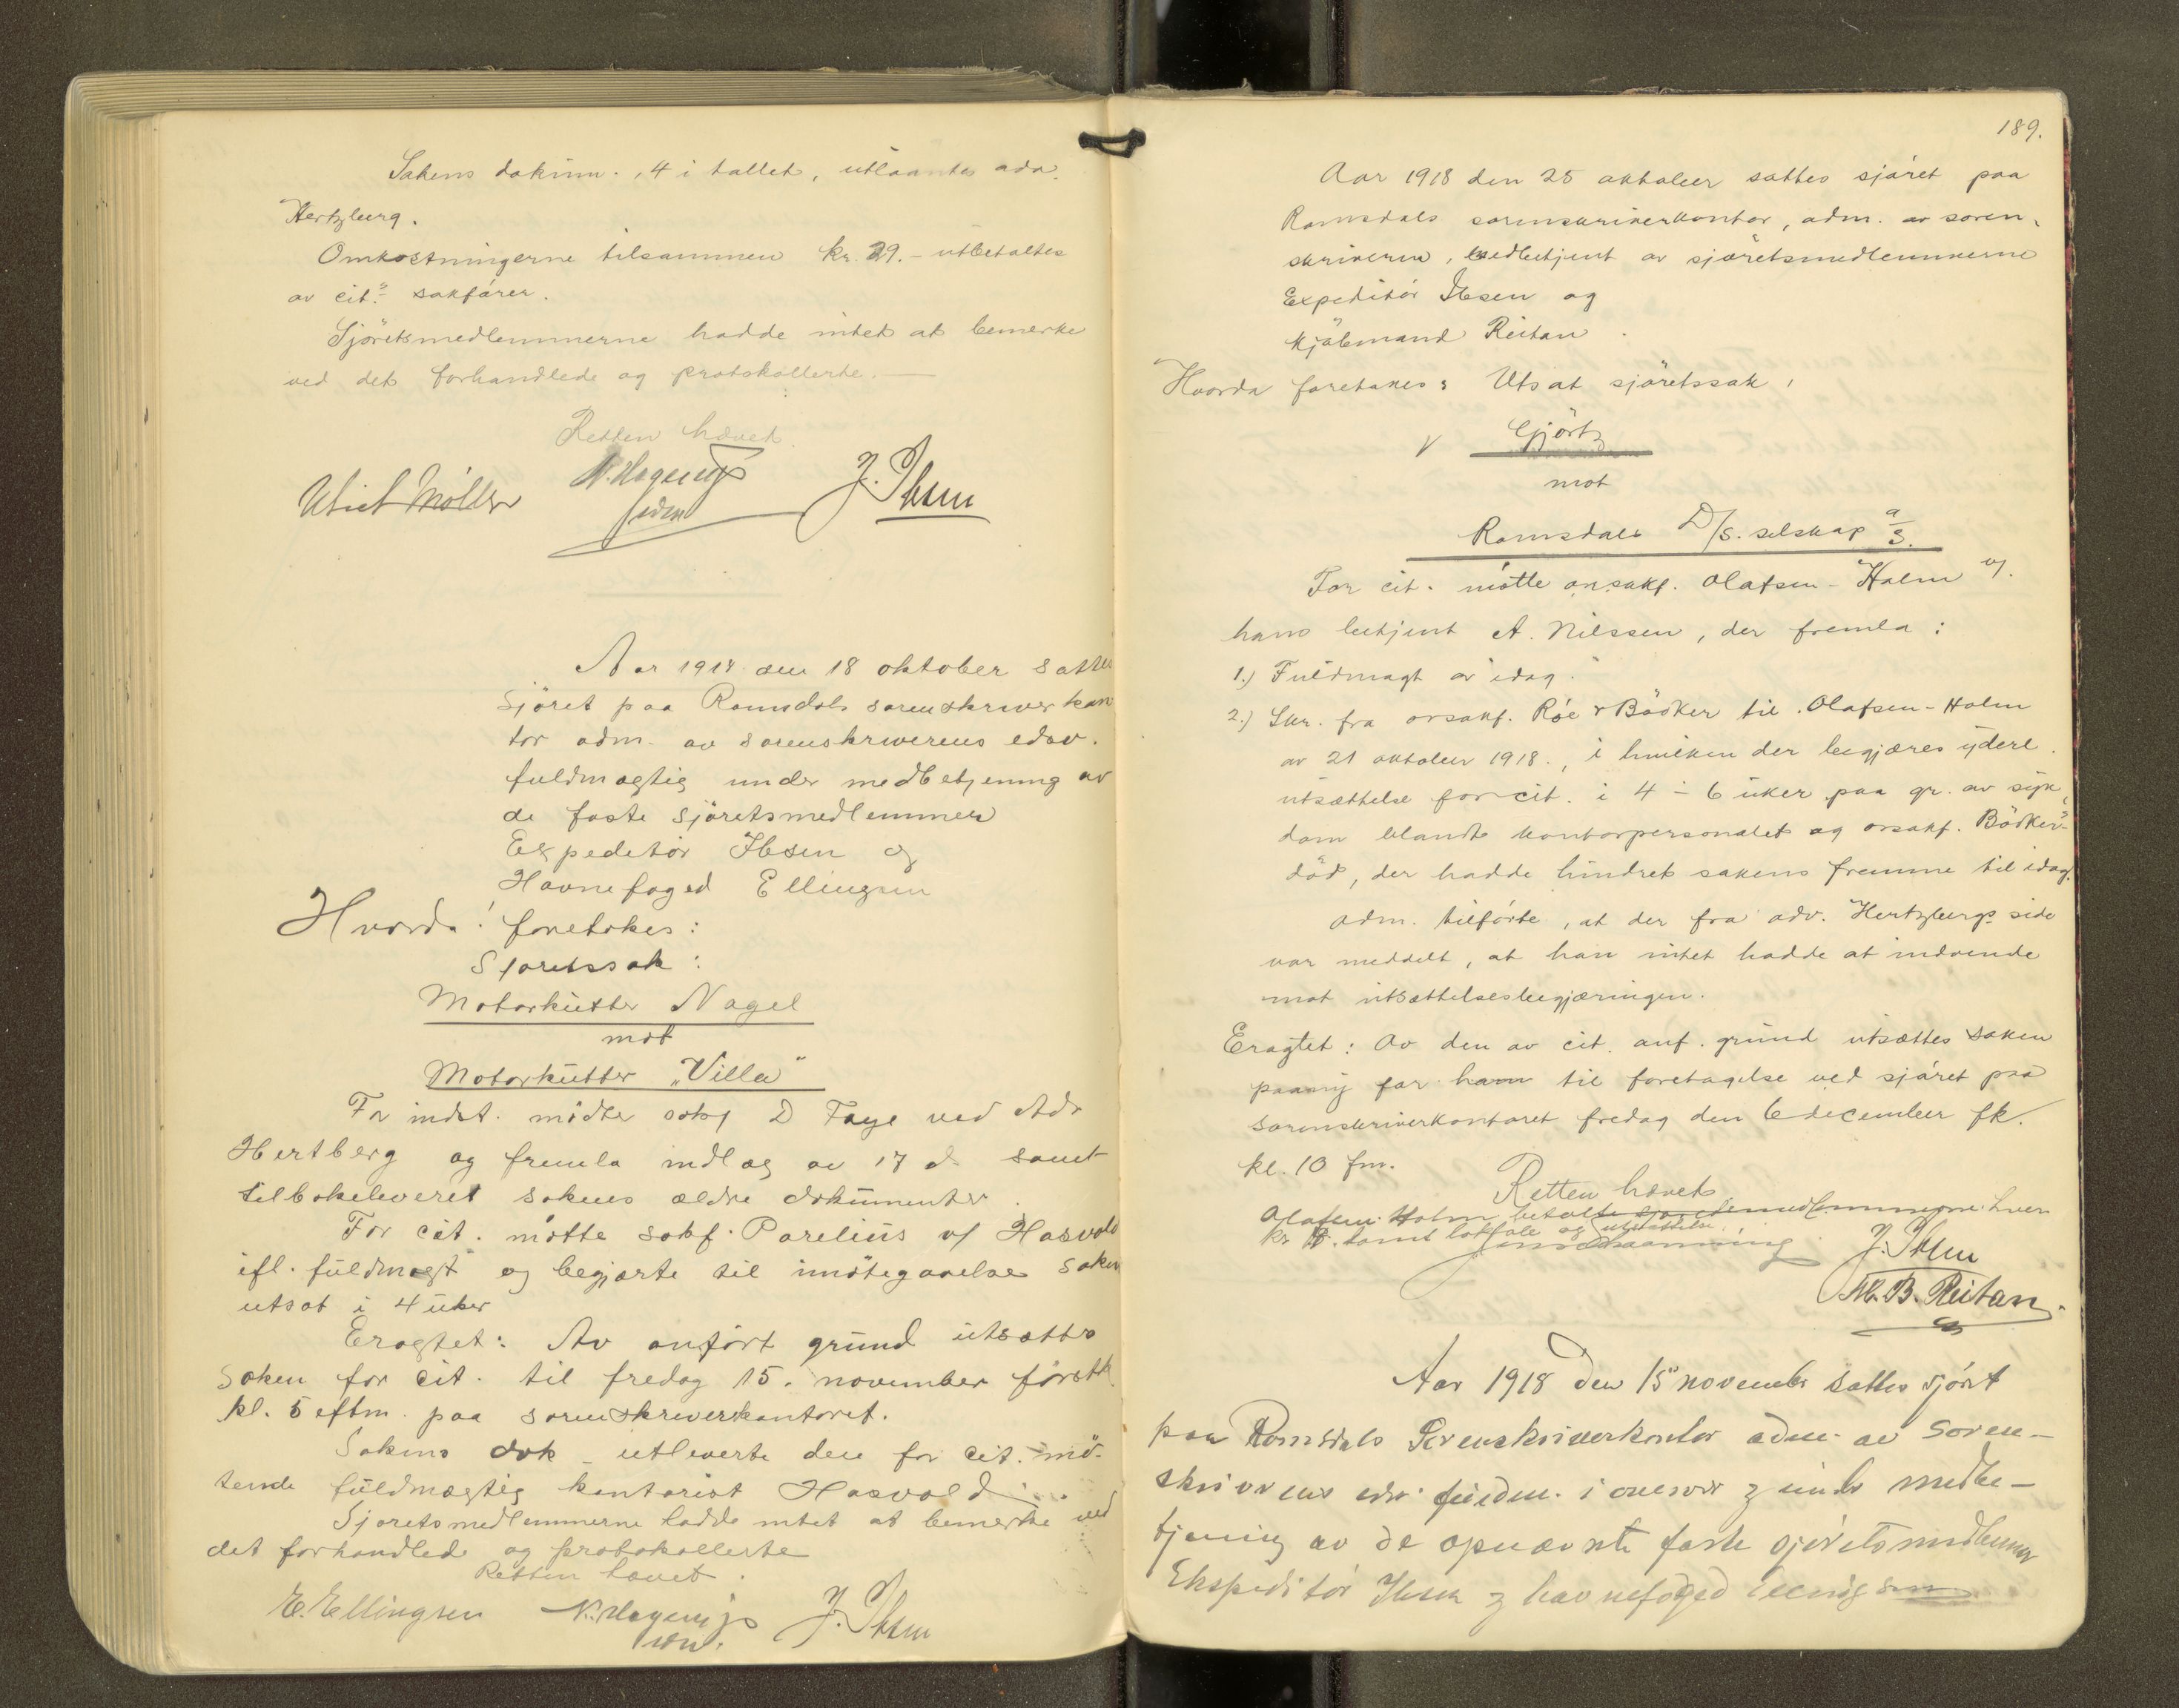 Sakens dokum. 4 i tallet, utlaantes adv.
Hertzberg.
Omkostningerne tilsammen kr. 29.- utbetaltes
av cit.s sakfører.
Sjöretsmedlemmerne hadde intet at bemerke
ved det forhandlede og protokollerte. —
Retten hævet.
Ulrich Møller J. Ibsen
Aar 1918 den 18 oktober sattes
Sjöret paa Romsdals sorenskriverkon
tor adm. av sorenskriverens edsv.
fuldmægtig under medbetjening av
de faste Sjöretsmedlemmer
Expeditør Ibsen og
Havnefoged Ellingsen
Hvorda! foretokes:
Sjöretssak:
Motorkutter Nagel
mot
Motorkutter „Villa"
For indst. mødte sakf D Faye ved Adv
Hertberg og fremla indlæg av 17 ds samt
tilbakeleveret sakens ældre dokumenter.
For cit. møtte sakf. Parelius v/ Hasvold
ifl. fuldmagt og begjærte til imøtegaaelse Saken
utsat i 4 uker
Eragtet: Av anført grund utsættes
Saken for cit. til fredag 15. november førstk.
kl. 5 eftm. paa sorenskriverkontoret.
Sakens dok utleverte den for cit. mø-
tende fuldmægtig kontorist Hasvold.
Sjøretsmedlemmerne hadde intet at bemerke ved
det forhandlede og protokollerte
Retten hævet.
E. Ellingsen J. Ibsen
189.
Aar 1918 den 25 oktober sattes sjöret paa
Romsdals sorenskriverkontor, adm. av soren-
skriveren, medbetjent av sjöretsmedlemmerne
Expeditör Ibsen og
Kjöbmand Reitan.
Hvorda foretokes: Utsat sjöretssak,
Gjörtz
mot
Romsdals D/S. selskap a/s.
For cit. møtte orsakf. Olafsen-Holm v/.
hans betjent A. Nilssen, der fremla:
1.) Fuldmagt av idag.
2.) Skr. fra orsakf. Röe & Bödker til Olafsen-Holm
av 21 oktober 1918., i hvilken der begjæres yderl.
utsættelse for cit. i 4 - 6 uker paa gr. av syk-
dom blandt kontorpersonalet og orsakf. Bödkers
död, der hadde hindret sakens fremme til idag.
Adm. tilførte, at der fra adv. Hertzbergs side
var meddelt, at han intet hadde at indvende
mot utsættelsesbegjæringen.
Eragtet: Av den av cit. anf. grund utsættes saken
paany for ham til foretagelse ved sjöret paa
sorenskriverkontoret fredag den 6 december fk.
kl. 10 fm.
Retten hævet
Olafsen-Holm betalte sjøretsmedlemmerne hver
kr samt lokale og utskrift
J. Ibsen
M. B. Reitan.
Aar 1918 den 15 november sattes sjöret
paa Romsdals Sorenskriverkontor adm. av soren-
skriverens edsv. fuldm. i ansvar & under medbe-
tjening av de opnævnte faste sjöretsmedlemmer
Ekspeditör Ibsen & havnefoged Ellingsen